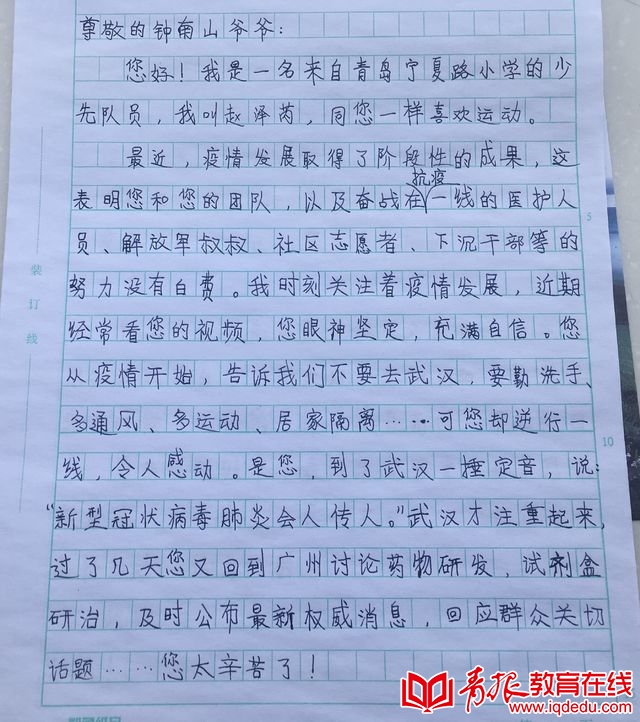 尊敬的钟南山爷爷：
您好！我是一名来自青岛宁夏路小学的少
先队员，我叫赵泽芮，同您一样喜欢运动。
最近，疫情发展取得了阶段性的成果，这
抗疫
表明您和您的团队，以及奋战在一线的医护人
员、解放军叔叔、社区志愿者、下沉干部等的
5
努力没有白费。我时刻关注着疫情发展，近期
经常看您的视频，您眼神坚定，充满自信。您
从疫情开始，告诉我们不要去武汉，要勤洗手、
多通风、多运动、居家隔离……可您却逆行一
10
线，令人感动。是您，到了武汉一捶定音，说：
“新型冠状病毒肺炎会人传人。”武汉才注重起来，
过了几天您又回到广州讨论药物研发，试剂盒
研治，及时公布最新权威消息，回应群众关切
话题……您太辛苦了！
装订线
青报教育在线
www.iqdedu.com